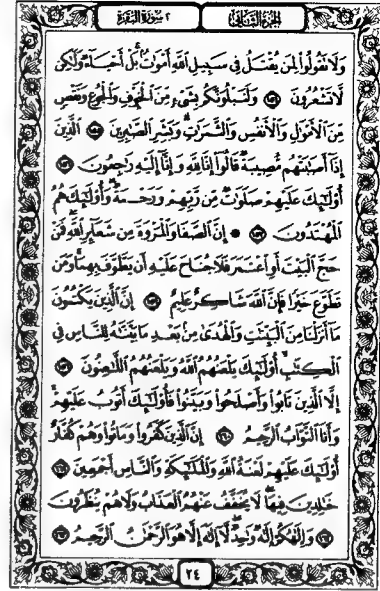 الجزء الثاني ٢ سورة البقرة
ولا تقولوا لمن يقتل في سبيل الله أموات بل أحياء ولكن
لا تشعرون ١٥٤ ولنبلونكم بشيء من الخوف والجوع ونقص
من الأمول والأنفس والثمرت وبشر الصبرين ١٥٥ الذين
إذا أصبتهم مصيبة قالوا إنا لله وإنا إليه رجعون ١٥٦
أولئك عليهم صلوت من ربهم ورحمة وأولئك هم
المهتدون ١٥٧ إن الصفا والمروة من شعائر الله فمن
حج البيت أو اعتمر فلا جناح عليه أن يطوف بهما ومن
تطوع خيرا فإن الله شاكر عليم ١٥٨ إن الذين يكتمون
ما أنزلنا من البينت والهدى من بعد ما بينه للناس في
الكتب أولئك يلعنهم الله ويلعنهم اللعنون ١٥٩
إلا الذين تابوا وأصلحوا وبينوا فأولئك أتوب عليهم
وأنا التواب الرحيم ١٦٠ إن الذين كفروا وماتوا وهم كفار
أولئك عليهم لعنة الله والملئكة والناس أجمعين ١٦١
خلدين فيها لا يخفف عنهم العذاب ولا هم ينظرون
١٦٢ وإلهكم إله وحد لا إله إلا هو الرحمن الرحيم ١٦٣
٢٤